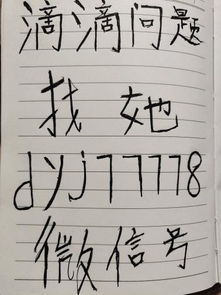 滴滴问题
找她
dyj77778
微信号